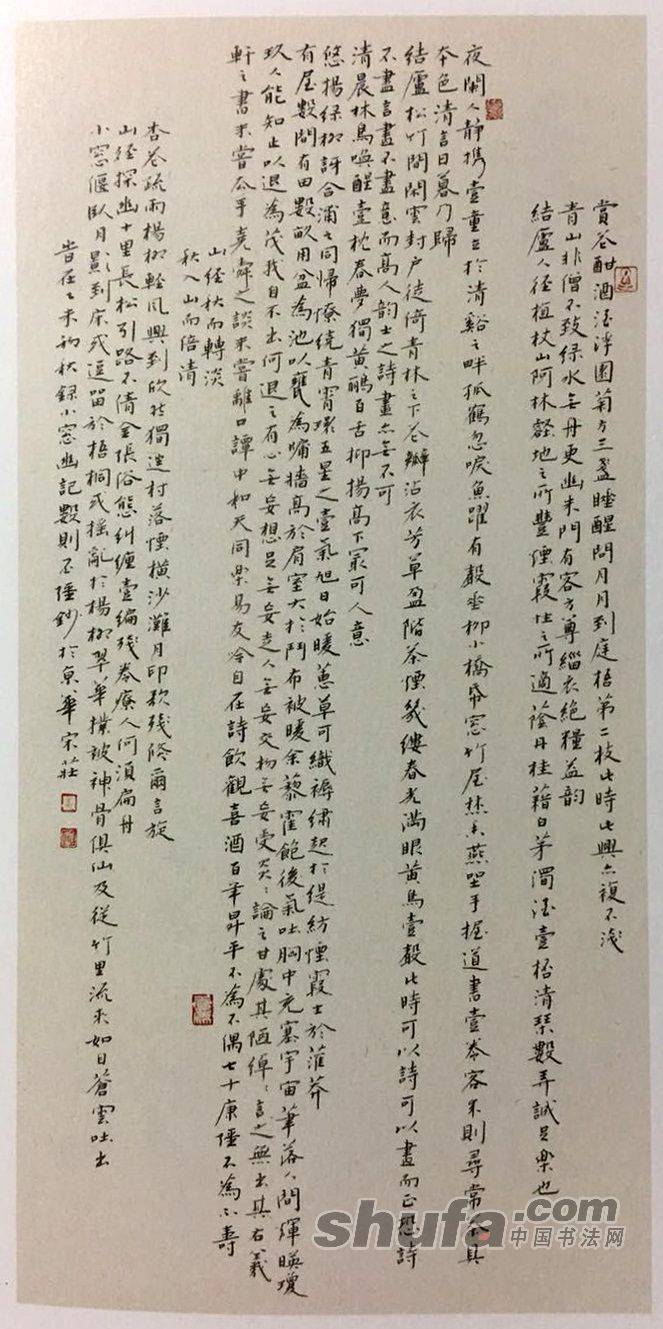 賞花酣酒酒浮園菊方三盞睡醒問月月到庭梧第二枝此時此興亦複不淺
青山非僧不致綠水無舟更幽朱門有客方尊緇衣絕糧益韵
結廬人徑植杖山阿林壑地之所豐煙霞性之所適蔭丹桂藉白茅濁酒壹杯清琴數弄誠足樂也
夜闌人靜攜壹童立於清谿之畔孤鶴忽唳魚躍有聲
垂柳小橋紙窗竹屋焚香燕坐手握道書壹卷客來則尋常茶具
本色清言日暮乃歸
結廬松竹間閑雲封戶徙倚青林之下花瓣沾衣芳草盈階茶煙幾縷春光滿眼黃鳥壹聲此時可以詩可以畫而正恐詩
不盡言畫不盡意而高人韵士之詩畫亦無不可
清晨林鳥喚醒壹枕春夢獨黃鸝百舌抑揚高下最可人意
悠揚綠柳訝合浦之同歸燎繞青霄環五星之壹氣旭日始暖蕙草可織裖繡起於緹紡煙霞士於灌莽
有屋數間有田數畝用盆為池以甕為牖牆高於肩室大於鬥布被暖余藜藿飽後氣吐胸中充塞宇宙筆落人間輝暎瓊
玖人能知止以退為茂我自不出何退之有心無妄想足無妄走人無妄交物無妄受炎炎論之甘處其陋綽綽言之無出其右羲
軒之書未嘗去手堯舜之談未嘗離口譚中和天同樂易友吟自在詩飲觀喜酒百年昇平不為不偶七十康強不為不壽
山徑秋而轉淡
秋入山而倍清
杏花疏雨楊柳輕風興到欣然獨往村落煙橫沙灘月印歌殘倏爾言旋
山徑探幽十里長松引路不倩金張俗態糾纏壹編殘卷療人何須扁舟
小窗偃臥月影到床或逗留於梧桐或搖亂於楊柳翠華撲被神骨俱仙及從竹里流來如自蒼雲吐出
歲在乙未初秋錄小窗幽記數則不孫鈔於京華宋莊
shufa.com
中国书法网